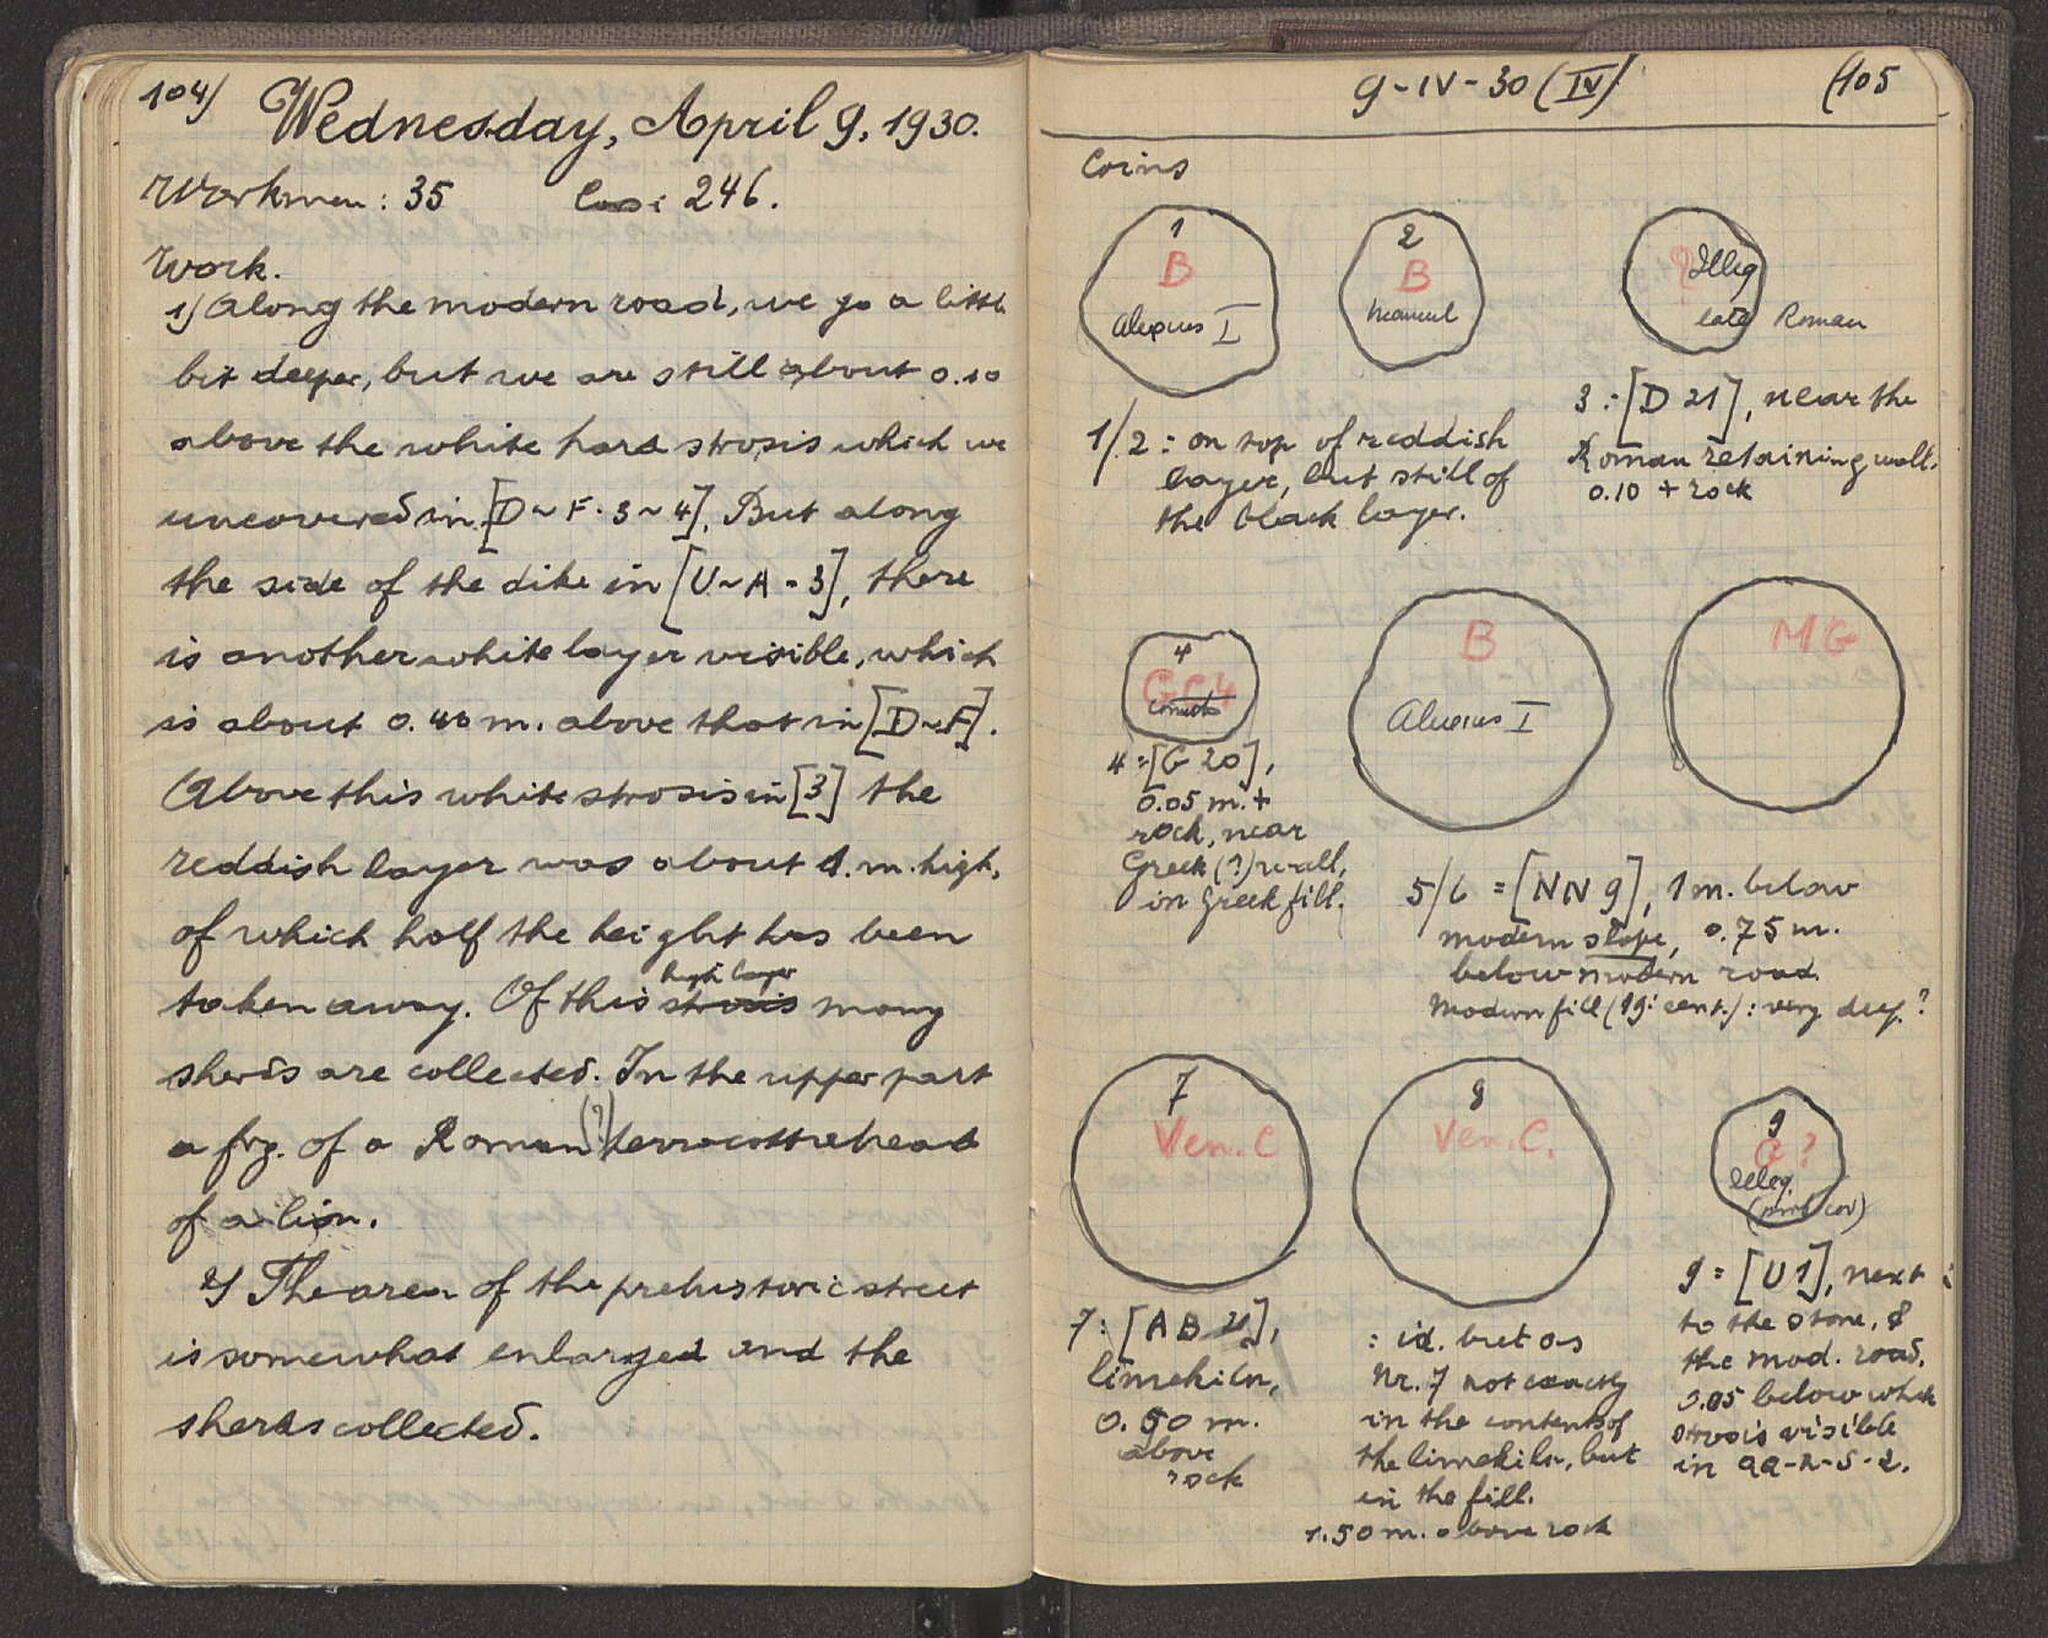 104)
Wednesday, April 9, 1930.
Workmen: 35 246.
Work.
1) Along the modern road, we go a little
bit deeper, but we are still about 0.10
above the white hard strosis which we
uncovered in [D~F·3~4]. But along
the side of the dike in [U~A-3], there
is another white layer visible, which
is about 0.40 m. above that in [D~F].
Above this white strosis in [3] the
reddish layer was about 1. m. high,
of which half the height has been
high layer
taken away. Of this strosis many
sherds are collected. In the upper part
a frg. of a Roman (?) terracotta head
of a lion.
2) The area of the prehistoric street
is somewhat enlarged and the
sherds collected.
9-IV-30 (IV)
(105
Coins
1
B
Alexius I
2
B
? Illeg
late Roman
1/2: on top of reddish
layer, but still of
the black layer.
3: [D 21], near the
Roman retaining wall.
0.10 + rock
4
4=[G 20],
0.05 m. +
rock, near
Greek (?) wall,
in Greek fill.
B
Alexius I
MG
5/6 = [NN 9], 1 m. below
modern slope, 0.75 m.
below modern road.
Modern fill (19: cent.): very deep?
7
Ven. C
8
Ven. C.
9
G ?
Illeg.
7: [AB 21],
limekiln,
0.50 m.
above
rock
: id. but as
Nr. 7 not exactly
in the contents of
the limekiln, but
in the fill.
1.50 m. above rock
9 = [U1], next
to the stone, &
the mod. road.
0.05 below white
strosis visible
in